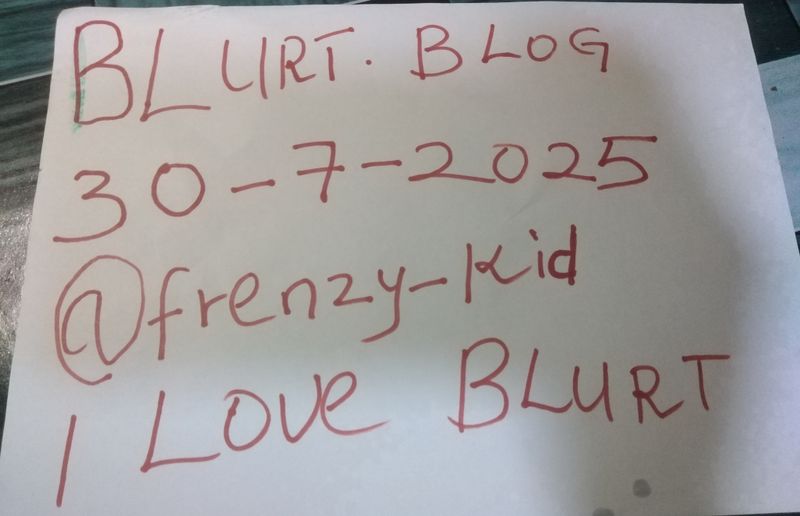 BLURT. BLOG
30-7-2025
@frenzy-kid
I LOVE BLURT